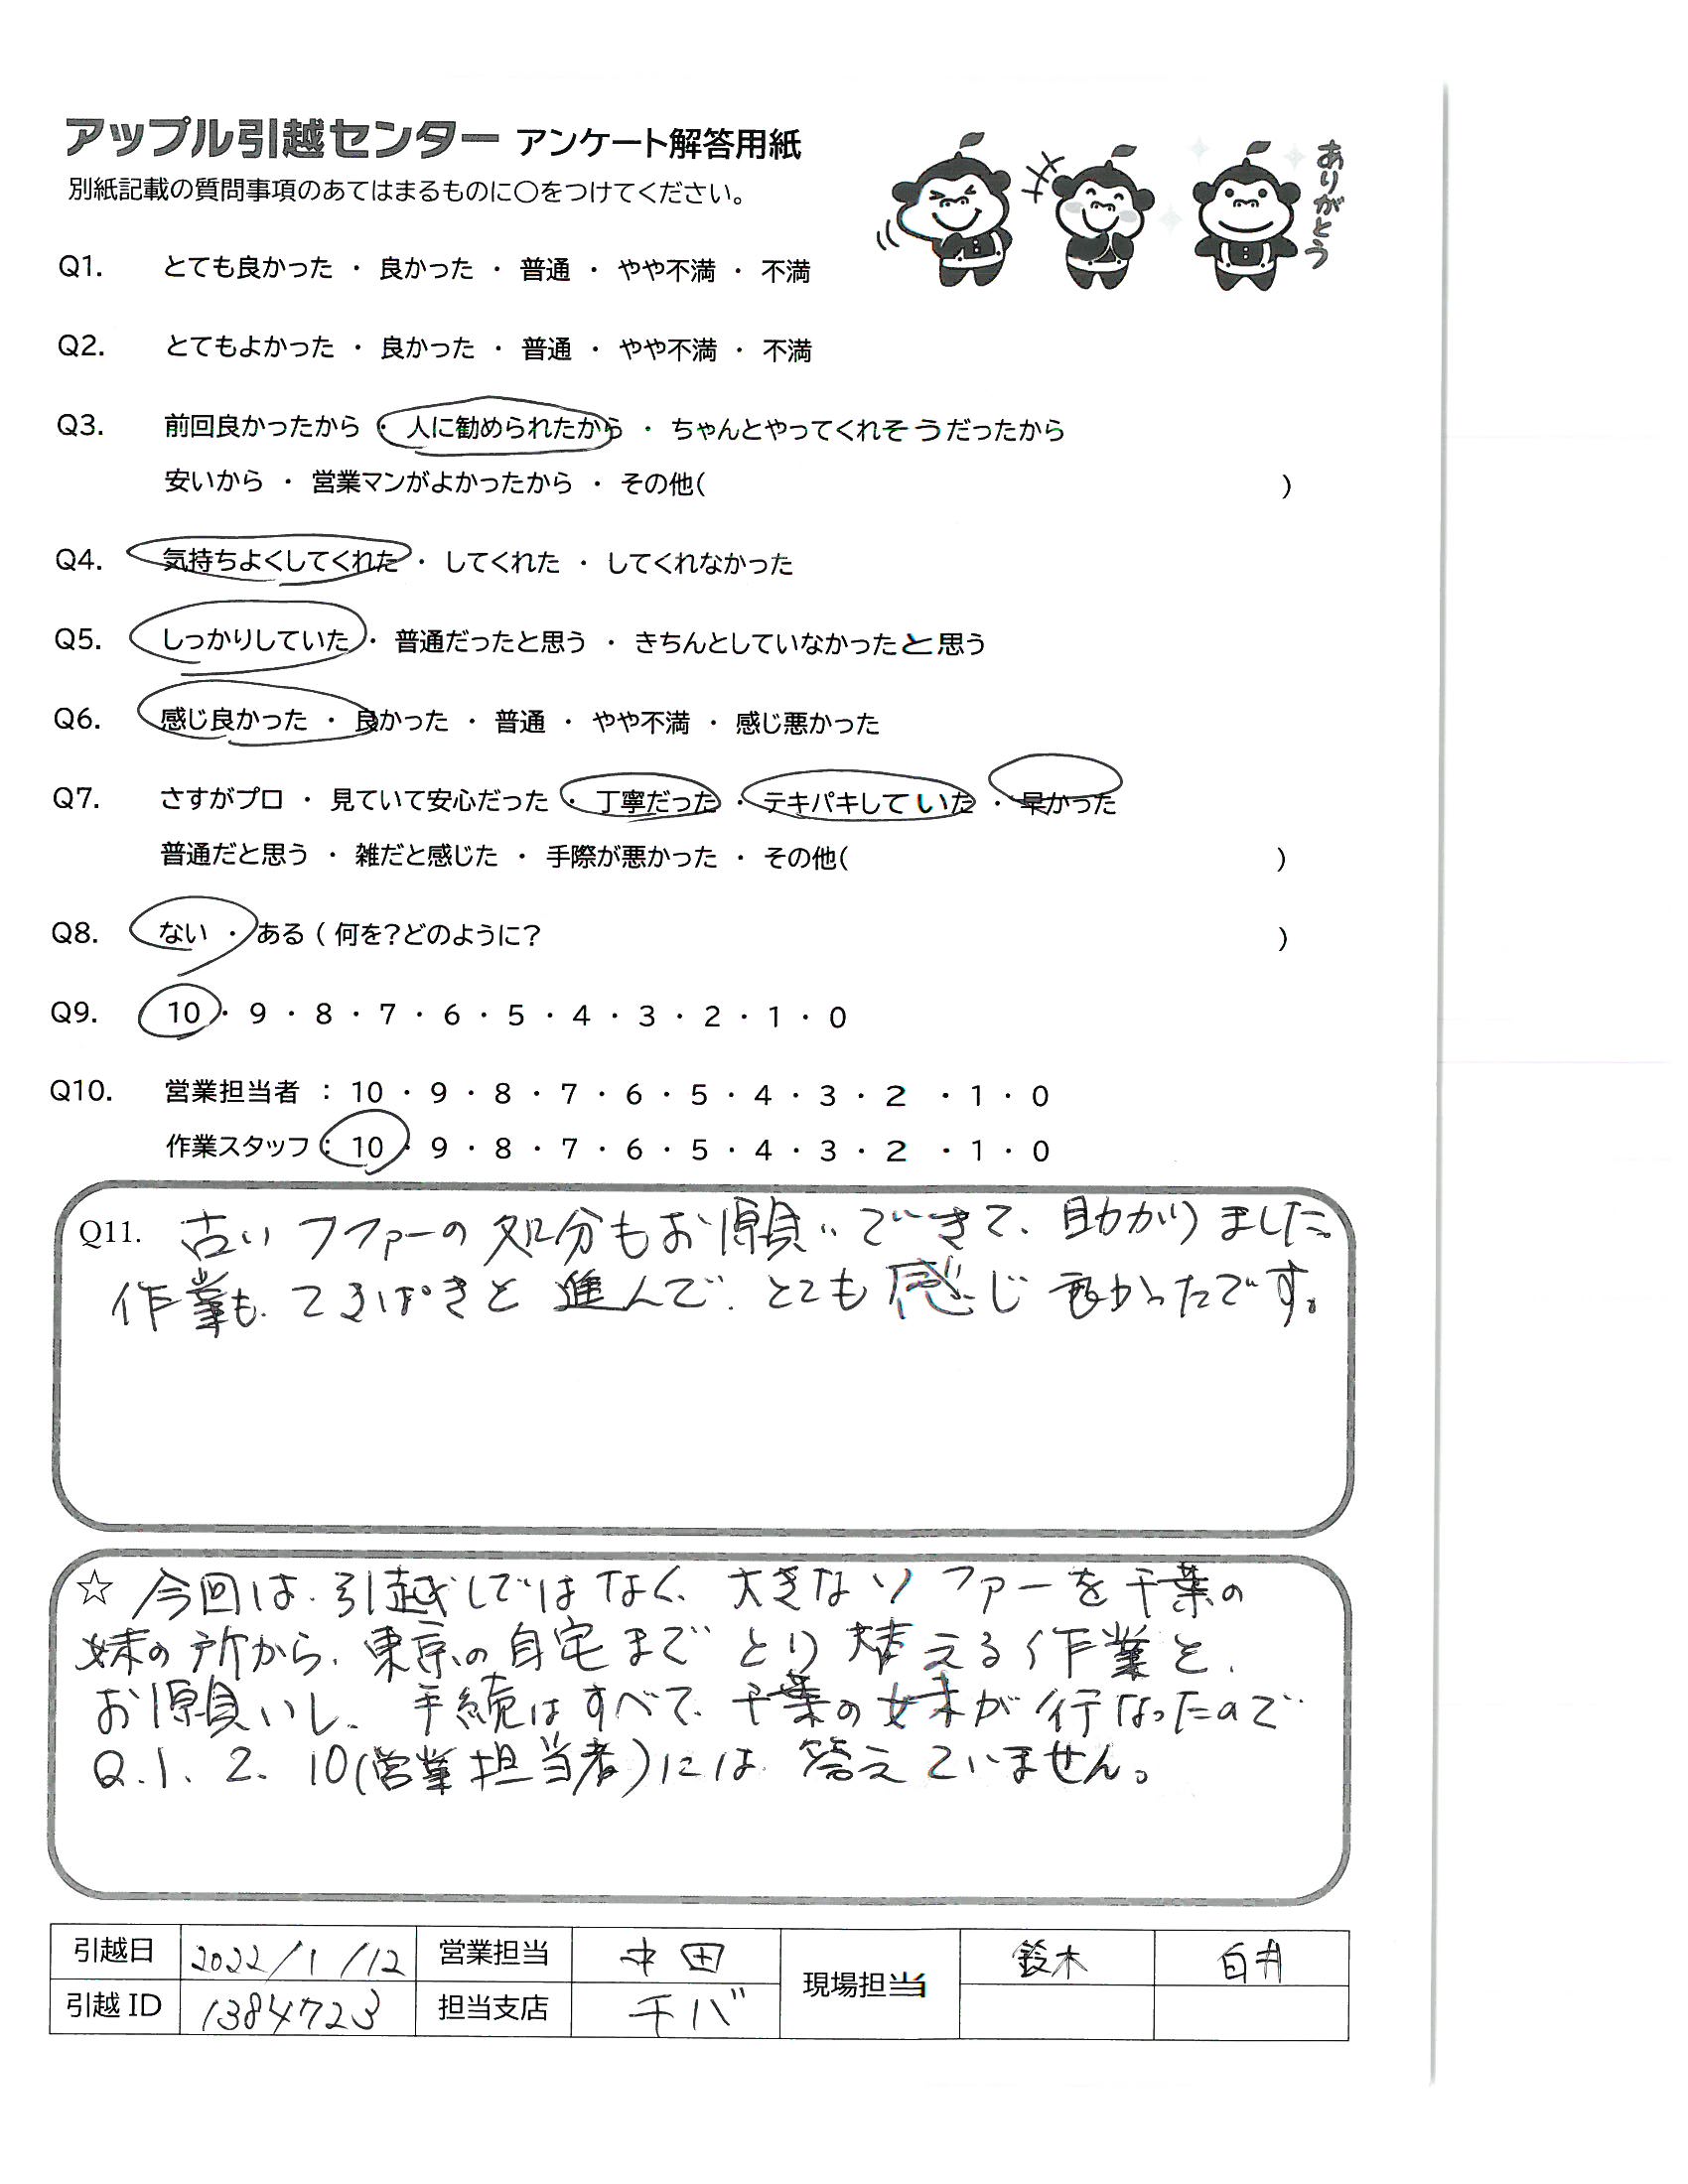 アップル引越センター アンケート解答用紙
別紙記載の質問事項のあてはまるものに○をつけてください。
ありがとう
Q1. とても良かった ・ 良かった ・ 普通 ・ やや不満 ・ 不満
Q2. とてもよかった ・ 良かった ・ 普通 ・ やや不満 ・ 不満
Q3. 前回良かったから ・ 人に勧められたから ・ ちゃんとやってくれそうだったから
安いから ・ 営業マンがよかったから ・ その他( )
Q4. 気持ちよくしてくれた ・ してくれた ・ してくれなかった
Q5. しっかりしていた ・ 普通だったと思う ・ きちんとしていなかったと思う
Q6. 感じ良かった ・ 良かった ・ 普通 ・ やや不満 ・ 感じ悪かった
Q7. さすがプロ ・ 見ていて安心だった ・ 丁寧だった ・ テキパキしていた ・ 早かった
普通だと思う ・ 雑だと感じた ・ 手際が悪かった ・ その他( )
Q8. ない ・ ある ( 何を?どのように? )
Q9. 10 ・ 9 ・ 8 ・ 7 ・ 6 ・ 5 ・ 4 ・ 3 ・ 2 ・ 1 ・ 0
Q10. 営業担当者 : 10 ・ 9 ・ 8 ・ 7 ・ 6 ・ 5 ・ 4 ・ 3 ・ 2 ・ 1 ・ 0
作業スタッフ : 10 ・ 9 ・ 8 ・ 7 ・ 6 ・ 5 ・ 4 ・ 3 ・ 2 ・ 1 ・ 0
Q11. 古いソファーの処分もお願いできて、助かりました。
作業も、てきぱきと進んで、とても感じ良かったです。
☆ 今回は、引越しではなく、大きなソファーを千葉の
妹の所から、東京の自宅までとり替える作業を、
お願いし、手続はすべて、千葉の妹が行なったので
Q.1、2、10(営業担当者)には、答えていません。
引越日 2022/1/12 営業担当 中田 現場担当 鈴木 白井
引越ID 1384723 担当支店 千バ